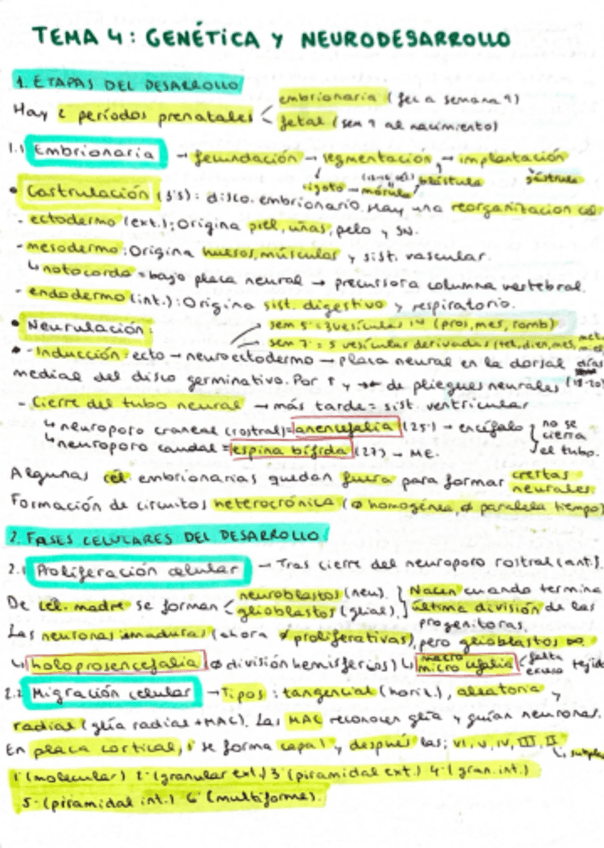 TEMA 4: GENÉTICA Y NEURODESARROLLO
1. ETAPAS DEL DESARROLLO
Hay 2 períodos prenatales < embrionaria (fec a semana 9)
fetal (sem 9 al nacimiento)
1.1 Embrionaria → fecundación → segmentación → implantación
zigoto → mórula blástula gástrula
• Gastrulación (3ªS): disco embrionario. Hay una reorganización cel
- ectodermo (ext.): Origina piel, uñas, pelo y SN.
- mesodermo: Origina huesos, múscular y sist. vascular.
↳ notocorda = bajo placa neural → precursora columna vertebral.
- endodermo (int.): Origina sist. digestivo y respiratorio.
• Neurulación: sem 5 = 3 vesículas 1ª (pros, mes, romb)
sem 7 = 5 vesículas derivadas (tel, dien, mes, met
- Inducción: ecto → neuroectodermo → placa neural en la dorsal días
medial del disco germinativo. Por ↑ y →← de pliegues neurales (18-20)
- Cierre del tubo neural → más tarde = sist. ventricular
↳ neuroporo craneal (rostral) = anencefalia (25) → encéfalo } no se
↳ neuroporo caudal = espina bífida (27) → ME. cierra el tubo.
Algunas cél embrionarias quedan fuera para formar crestas
neurales.
Formación de circuitos heterocrónica (∅ homogénea, ∅ paralela tiempo)
2. FASES CELULARES DEL DESARROLLO
2.1 Proliferación celular → Tras cierre del neuroporo rostral (ant.).
De cél. madre se forman < neuroblastos (neu). } Nacen cuando termina
glioblastos (glial). última división de las
progenitoras.
Las neuronas inmaduras (ahora ∅ proliferativas), pero glioblastos ∞
↳ holoprosencefalia (∅ división hemisferios) ↳ macro / micro cefalia < falta
exceso tejid
2.2 Migración celular → Tipos: tangencial (horiz.), aleatoria y
radial (glía radial + MAC). Las MAC reconocen glía y guían neuronas.
En placa cortical, 1º se forma capa I y después las: VI, V, IV, III, II
1ª (molecular) 2ª (granular ext.) 3ª (piramidal ext.) 4ª (gran. int.)
5ª (piramidal int.) 6ª (multiforme).